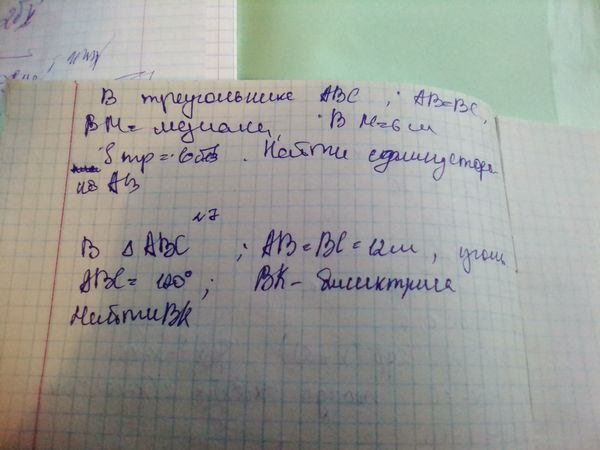 В треугольнике ABC ; AB=BC,
BM= медиана, BM=6м
Sтр = . Найти
на AB
№7
В △ ABC ; AB=BC=12см, угол
ABC= 120°; BK- биссектриса
Найти BK